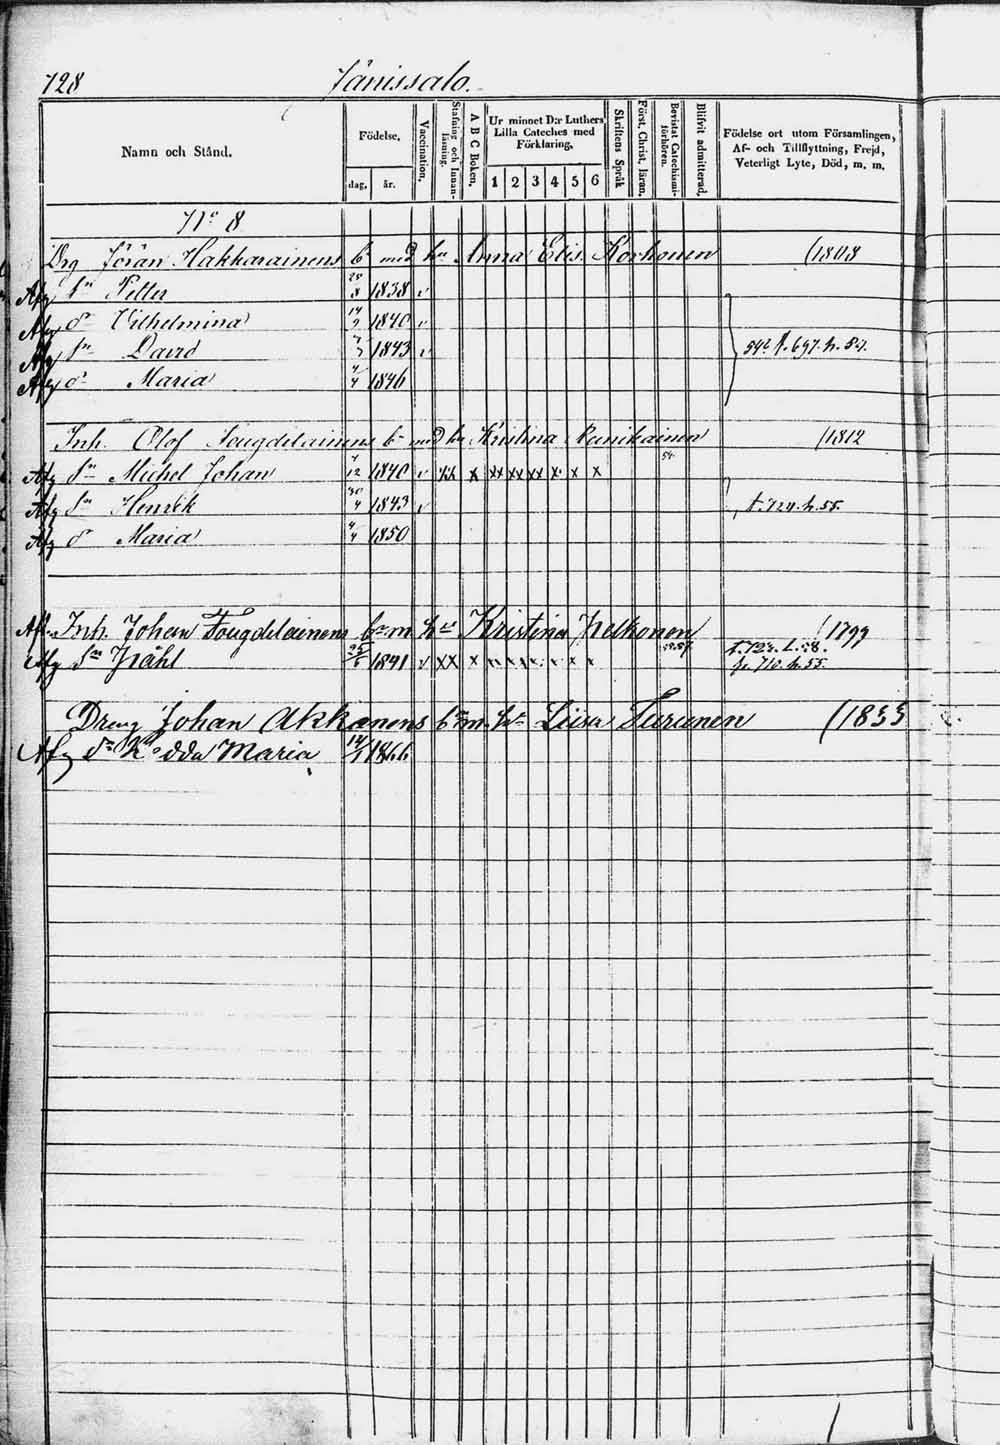 728 Jänissalo.
Namn och Stånd.
Födelse,
dag, år.
Vaccination,
Stafning och Innanläsning.
A B C Boken,
Ur minnet D:r Luthers Lilla Cateches med Förklaring,
1 2 3 4 5 6
Skriftens Språk
Först. Christ. läran,
Bevistat Catechismiförhören.
Blifvit admitterad,
Födelse ort utom Församlingen,
Af- och Tillflyttning, Frejd,
Veterligt Lyte, Död, m. m.
No 8
Drg Jöran Hakkarainens bn med hu Anna Elis. Korhonen (1808
Afg Sn Petter 25/8 1838 v
Afg dr Vilhelmina 14/9 1840 v
Afg Sn David 1843 v 542 f. 697. h. 54.
Afg dr Maria 4/4 1846
Inh. Olof Tougdelainens bn med hu Kristina (1812
Afg Sn Michel Johan 7/12 1840 v xx x xx xx xx x x x 54.
Afg Sn Henrik 30/4 1843 v t. 724. h. 55.
Afg dr Maria 4/4 1850
Afg Inh. Johan Tougdelainens bn m. hu Kristina Pelkonen (1799
Afg Sn Påhl 25/6 1841 v xx x x x x x x x
f. 710. h. 55.
Dreng Johan Akkanens bn m. hu Liisa Turunen (1833
Afg dr Hedda Maria 14/1 1866